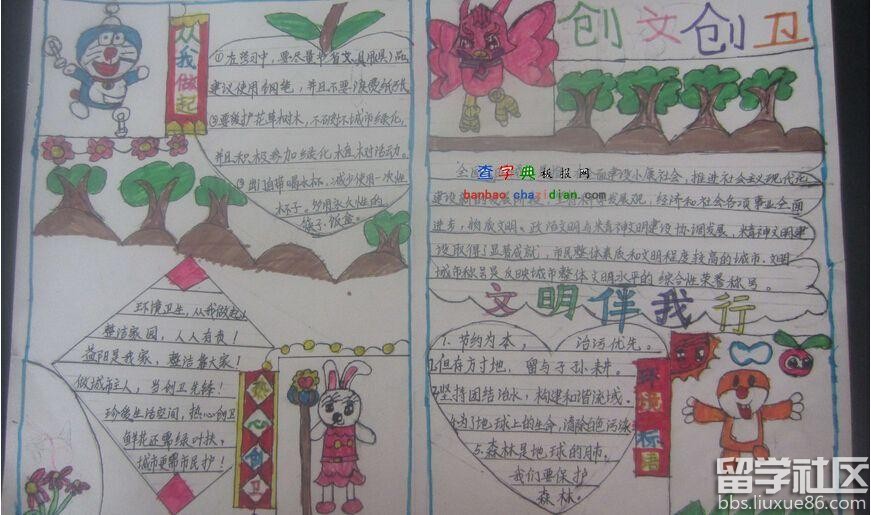 从我做起
①在学习中,要尽量节省文具用品,
建议使用钢笔,并且不要浪费纸张
②要维护花草树木,不破坏城市绿化,
并且积极参加绿化植树活动。
③出门自带喝水杯,减少使用一次性
杯子。多用永久性的
筷子、饭盒。
环境卫生,从我做起
整洁家园,人人有责!
益阳是我家,整洁靠大家!
做城市主人,当创卫先锋!
珍爱生活空间,热心创卫
鲜花还要绿叶扶,
城市更需市民护!
心创卫
创文创卫
全国
面建设小康社会,推进社会主义现代化
建设
发展观,经济和社会各项事业全面
进步,物质文明、政治文明与精神文明建设协调发展,精神文明建
设取得了显著成就,市民整体素质和文明程度较高的城市。文明
城市称号是反映城市整体文明水平的综合性荣誉称号。
文明伴我行
1、节约为本,治污优先。
2、但存方寸地,留与子孙耕。
3、坚持团结治水,构建和谐流域。
4、为了地球上的生命,清除白色污染
5、森林是地球的肺。
我们要保护
森林。
环
标语
查字典板报网
banbao.chazidian.com
留学社区
bbs.liuxue86.com